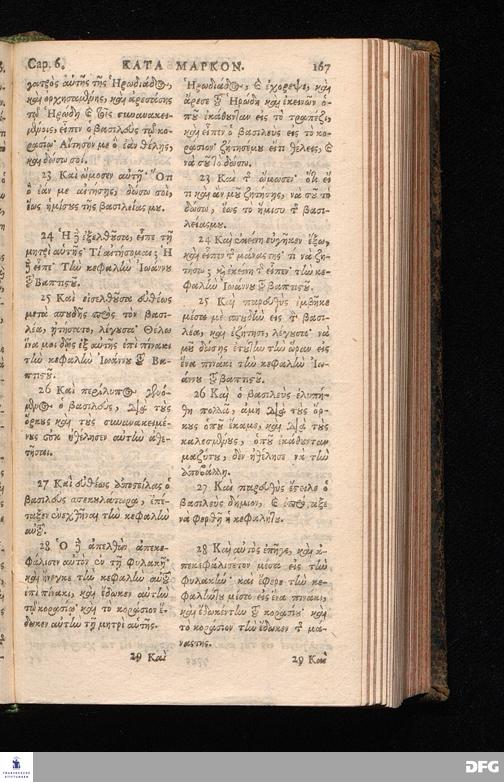 Cap. 6. ΚΑΤΑ ΜΑΡΚΟΝ. 167
γατρὸς αὐτῆς τῆς Ἡρωδιάδος,
καὶ ὀρχησαμένης, καὶ ἀρεσάσης
τῷ Ἡρώδῃ καὶ τοῖς συνανακει-
μένοις, εἶπεν ὁ βασιλεὺς τῷ κο-
ρασίῳ· Αἴτησόν με ὃ ἐὰν θέλῃς,
καὶ δώσω σοί.
23 Καὶ ὤμοσεν αὐτῇ· Ὅτι
ὃ ἐάν με αἰτήσῃς, δώσω σοὶ,
ἕως ἡμίσυς τῆς βασιλείας μου.
24 Ἡ δὲ ἐξελθοῦσα, εἶπε τῇ
μητρὶ αὑτῆς· Τί αἰτήσομαι; Ἡ
δὲ εἶπε· Τὴν κεφαλὴν Ἰωάννου
τοῦ Βαπτιστοῦ.
25 Καὶ εἰσελθοῦσα εὐθέως
μετὰ σπουδῆς πρὸς τὸν βασι-
λέα, ᾐτήσατο, λέγουσα· Θέλω
ἵνα μοι δῷς ἐξ αὐτῆς ἐπὶ πίνακι
τὴν κεφαλὴν Ἰωάννου τοῦ Βα-
πτιστοῦ.
26 Καὶ περίλυπος γενό-
μενος ὁ βασιλεὺς, διὰ τοὺς
ὅρκους καὶ τοὺς συνανακειμέ-
νους οὐκ ἠθέλησεν αὐτὴν ἀθε-
τῆσαι.
27 Καὶ εὐθέως ἀποστείλας ὁ
βασιλεὺς σπεκουλάτωρα, ἐπέ-
ταξεν ἐνεχθῆναι τὴν κεφαλὴν
αὐτοῦ.
28 Ὁ δὲ ἀπελθὼν ἀπεκε-
φάλισεν αὐτὸν ἐν τῇ φυλακῇ
καὶ ἤνεγκε τὴν κεφαλὴν αὐτοῦ
ἐπὶ πίνακι, καὶ ἔδωκεν αὐτὴν
τῷ κορασίῳ· καὶ τὸ κοράσιον ἔ-
δωκεν αὐτὴν τῇ μητρὶ αὑτῆς.
29 Καὶ
Ἡρωδιάδος, καὶ ἐχόρεψε, καὶ
ἄρεσε τοῦ Ἡρώδη καὶ ἐκεινῶν ὁ-
ποῦ ἐκάθουνταν εἰς τὸ τραπέζι,
καὶ εἶπεν ὁ βασιλεὺς εἰς τὸ κο-
ράσιον· ζήτησέμου εἴτι θέλεις, καὶ
νὰ σοῦ τὸ δώσω.
23 Καὶ τῆς ὤμωσεν· ὅτι εἴ
τι καὶ ἄν μοῦ ζητήσῃς, νὰ σοῦ τὸ
δώσω, ἕως τὸ ἥμισυ τῆς βασι-
λείαςμου.
24 Καὶ ἐκείνη εὐγῆκεν ἔξω,
καὶ εἶπεν τῆς μάναςτης· τί νὰ ζη-
τήσω; καὶ ἐκείνη τῆς εἶπεν· τὴν κε-
φαλὴν Ἰωάννου τοῦ βαπτιστοῦ.
25 Καὶ παρευθὺς ἐμβῆκε
μέσα μὲ σπουδὴν εἰς τὸν βασι-
λέα, καὶ ἐζήτησε, λέγουσα· νὰ
μοῦ δώσῃς ἐτούτην τὴν ὥραν εἰς
ἕνα πινάκι τὴν κεφαλὴν Ἰω-
άννου τοῦ βαπτιστοῦ.
26 Καὶ ὁ βασιλεὺς ἐλυπή-
θη πολλὰ, ἀμὴ διὰ τοὺς ὅρ-
κους ὁποῦ ἔκαμε, καὶ διὰ τοὺς
καλεσμένους, ὁποῦ ἐκάθουνταν
μαζήτου, δὲν ἠθέλησε νὰ τὴν
ἀποβάλῃ.
27 Καὶ παρευθὺς ἔστειλε ὁ
βασιλεὺς δήμιον, καὶ ἐπρόσταξε
νὰ φερθῇ ἡ κεφαλήτου.
28 Καὶ αὐτὸς ἐπῆγε, καὶ ἀ-
πεκεφάλισετον μέσα εἰς τὴν
φυλακήν· καὶ ἤφερε τὴν κε-
φαλήντου μέσα εἰς ἕνα πινάκι,
καὶ ἔδωκέντην τοῦ κορασίου· καὶ
τὸ κοράσιον τὴν ἔδωκεν τῆς μά-
ναςτης.
29 Καὶ
FRANCKESCHE STIFTUNGEN
DFG